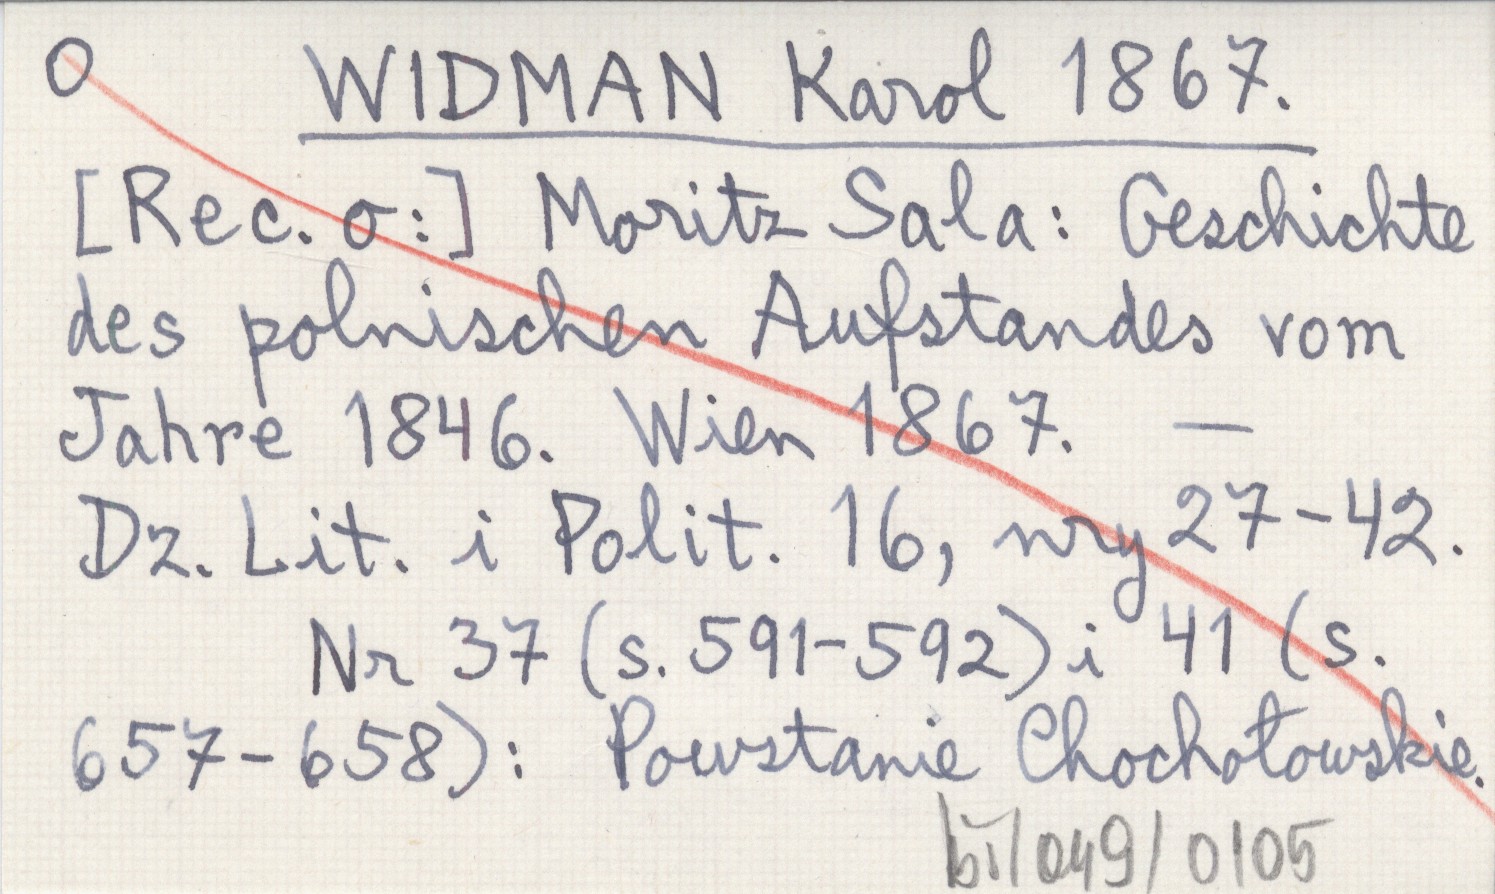 O WIDMAN Karol 1867.
[Rec. o:] Moritz Sala: Geschichte
des polnischen Aufstandes vom
Jahre 1846. Wien 1867. —
Dz. Lit. i Polit. 16, nry 27-42.
Nr 37 (s. 591-592) i 41 (s.
657-658): Powstanie Chochołowskie.
bi/049/0105